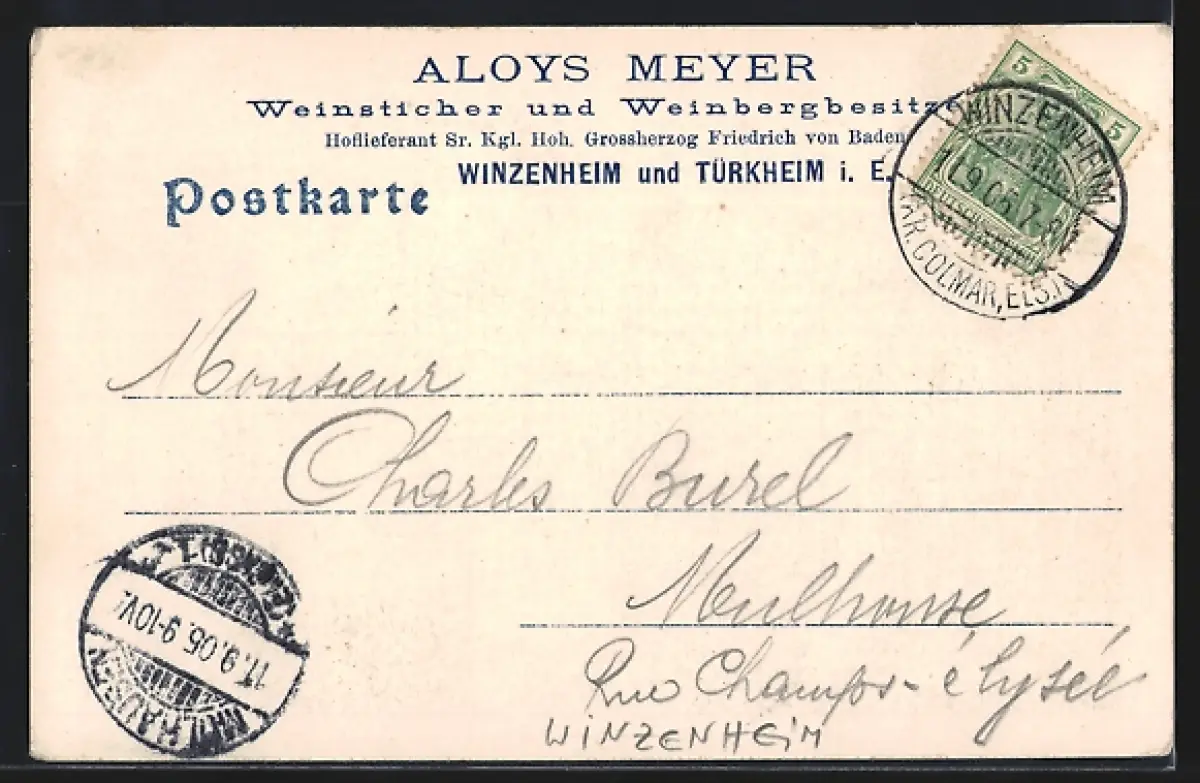 ALOYS MEYER
Weinsticher und Weinbergbesitze
Hoflieferant Sr. Kgl. Hoh. Grossherzog Friedrich von Baden
WINZENHEIM und TÜRKHEIM i. E.
Postkarte
5 5
WINZENHEIM
COLMAR, ELS.
Monsieur
Charles Burel
Mulhouse
Rue Champs-élysée
WINZENHEIM
11.9.05. 9-10V.
MÜLHAUSEN